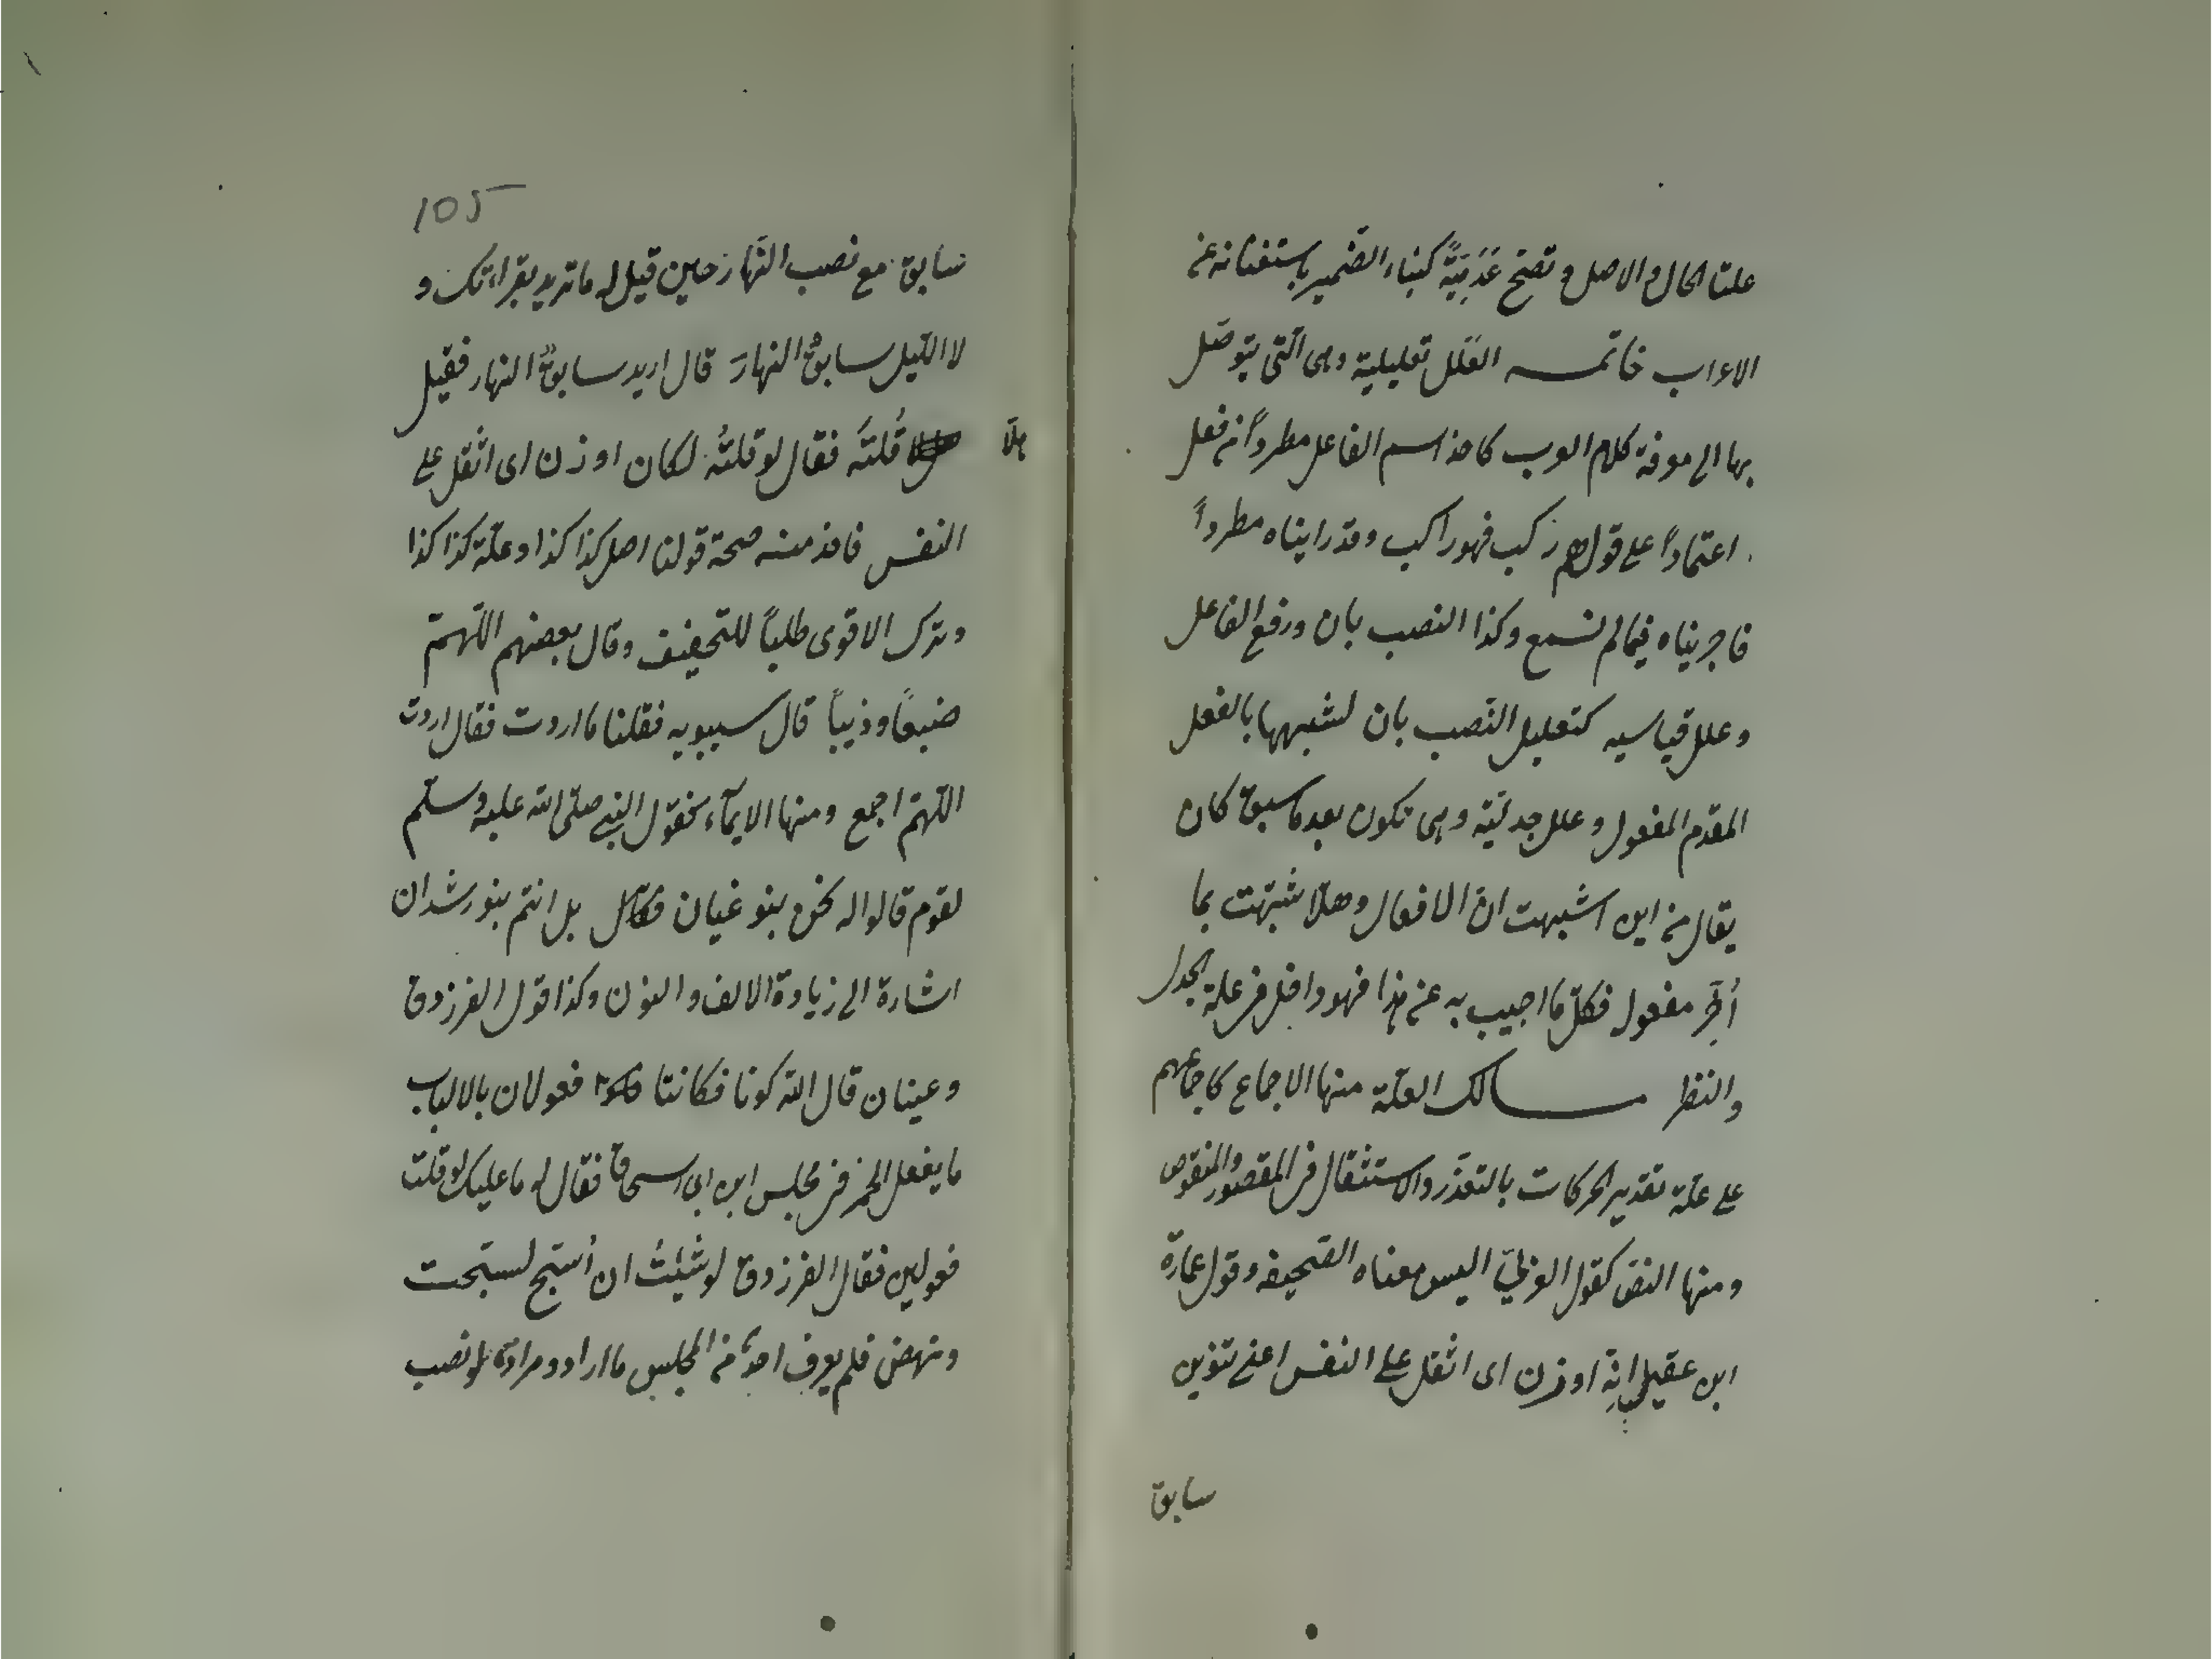 علتا الحال والاصل وتصح عَدَمِيَّةً كبناء الضمير باستغنائه عن
الاعراب خاتمـــه العلل تعليلية وهى التى يتوصل
بها الى معرفة كلام العرب كاخذ اسم الفاعل مطرداً من فعل
اعتماداً على قولهم ركب فهو راكب وقد رايناه مطرداً
فاجريناه فيما لم نسمع وكذا النصب بان ورفع الفاعل
وعلل قياسيه كتعليل النصب بان لشبهها بالفعل
المقدم المفعول وعلل جدليّة وهى تكون بعد ما سبق كان
يقال من اين اشبهت انّ الافعال وهلّا شبّهت بما
أُخِّر مفعول فكلّ ما اجيب به عن هذا فهو داخل فى علة الجدل
والنظر مســـالك العلّة منها الاجماع كاجماعهم
على علّة تقدير الحركات بالتعذّر والاستثقال فى المقصور والمنقوص
ومنها النصّ كقول العربيّ اليس معناه الصّحيفه وقول عمارة
ابن عقيل انه اوزن اى اثقل على النفس اعنى تنوين
سابق
105
سابق مع نصب النّهار حين قيل له ما تريد بقراءتك و
لا الليل سابقُ النهارَ قال اريد سابقٌ النهار فقيل
هلّا
قُلتَه فقال لو قلتُه لكان اوزن اى اثقل على
النفس فاخذ منه صحة قولنا اصل كذا كذا وعلّة كذا كذا
وترك الاقوى طلباً للتخفيف وقال بعضهم اللّهمّ
ضبعاً وذيباً قال سيبويه فقلنا ما اردت فقال اردت
اللّهمّ اجمع ومنها الايمآء كقول النبى صلّى الله عليه وسلّم
لقوم قالوا له نحن بنو غيان فقال بل انتم بنو رشدان
اشارة الى زيادة الالف والنون وكذا قول الفرزدق
وعينان قال الله كونا فكانتا فعولان بالالباب
ما يفعل الخمر فى مجلس ابن ابى اسحاق فقال له ما عليك لو قلت
فعولين فقال الفرزدق لو شئتُ ان أُسَبّح لسبّحت
ونهض فلم يعرف احدٌ من المجلس ما اراد ومراده لو نصب